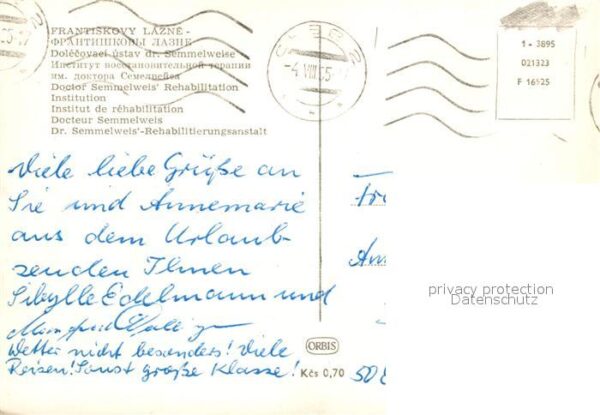 FRANTIŠKOVY LÁZNĚ -
ФРАНТИШКОВЫ ЛАЗНЕ
Doléčovací ústav dr. Semmelweise
Институт восстановительной терапии
им. доктора Семелвейса
Doctor Semmelweis' Rehabilitation
Institution
Institut de réhabilitation
Docteur Semmelweis
Dr. Semmelweis'-Rehabilitierungsanstalt
CHEB 2
-4.VIII.65
1 - 3895
021323
F 16525
Viele liebe Grüße an
Sie und Annemarie
aus dem Urlaub-
senden Ihnen
Sibylle Edelmann und
Manfred
Wetter nicht besonders! Viele
Reisen! Sonst große Klasse!
ORBIS
Kčs 0,70
Fr
An
50
privacy protection
Datenschutz